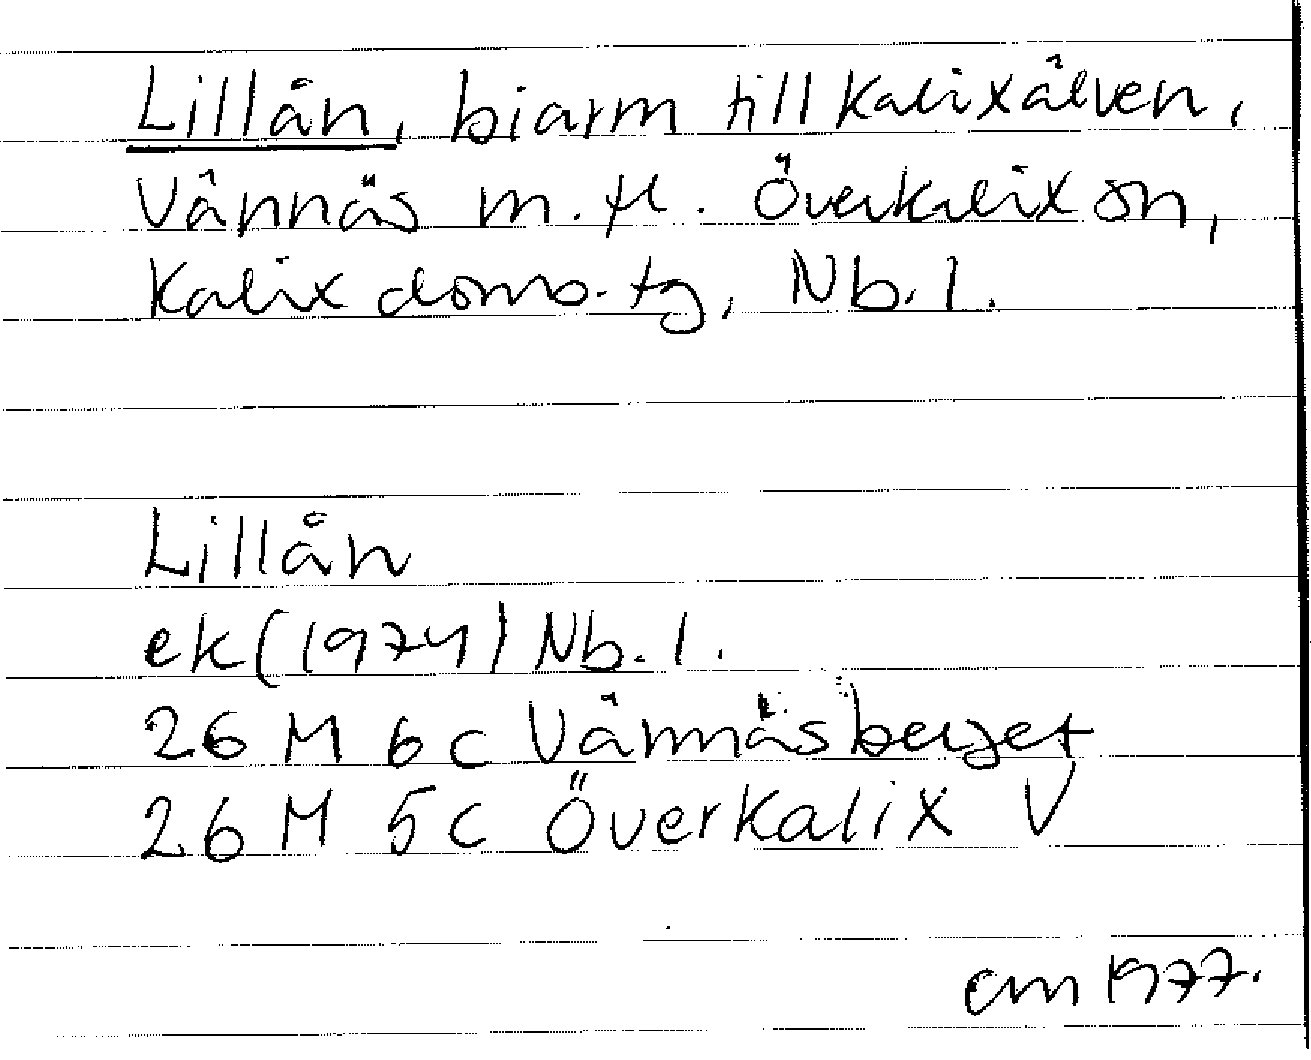 Lillån, biarm till Kalixälven,
Vännäs m.fl. Överkalix sn,
Kalix doms.tg, Nb.l.
Lillån
ek (1974) Nb.l.
26 M 6c Vännäsberget
26 M 5c Överkalix V
cm 1977.